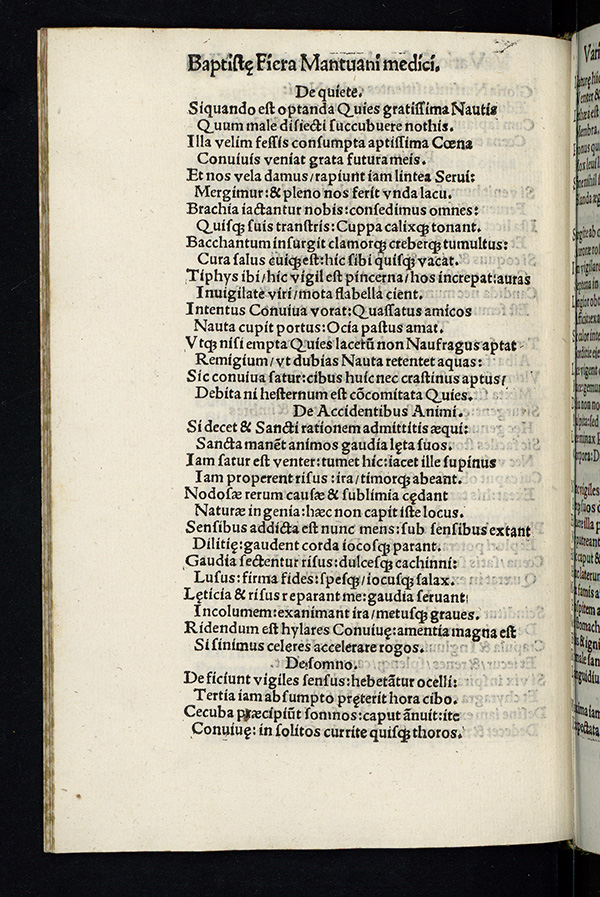 Baptistę Fiera Mantuani medici.
De quiete.
Siquando est optanda Quies gratissima Nautis
Quum male disiecti succubuere nothis.
Illa velim fessis consumpta aptissima Cœna
Conuiuis veniat grata futura meis.
Et nos vela damus/rapiunt iam lintea Serui:
Mergimur:& pleno nos ferit vnda lacu.
Brachia iactantur nobis:consedimus omnes:
Quisqꝫ suis transtris:Cuppa calixqꝫ tonant.
Bacchantum insurgit clamorqꝫ creberqꝫ tumultus:
Cura salus cuiqꝫ est:hic sibi quisqꝫ vacat.
Tiphys ibi/hic vigil est pincerna/hos increpat:auras
Inuigilate viri/mota flabella cient.
Intentus Conuiua vorat:Quassatus amicos
Nauta cupit portus:Ocia pastus amat.
Vtqꝫ nisi empta Quies lacetũ non Naufragus aptat
Remigium/vt dubias Nauta retentet aquas:
Sic conuiua satur:cibus huic nec crastinus aptus/
Debita ni hesternum est cõcomitata Quies.
De Accidentibus Animi.
Si decet & Sancti rationem admittitis æqui:
Sancta manẽt animos gaudia lęta suos.
Iam satur est venter:tumet hic:iacet ille supinus
Iam properent risus:ira/timorqꝫ abeant.
Nodosæ rerum causæ & sublimia cędant
Naturæ ingenia:hæc non capit iste locus.
Sensibus addicta est nunc mens:sub sensibus extant
Dilitię:gaudent corda iocosqꝫ parant.
Gaudia sectentur risus:dulcesqꝫ cachinni:
Lusus:firma fides:spesqꝫ/iocusqꝫ salax.
Lęticia & risus reparant me:gaudia seruant
Incolumem:exanimant ira/metusqꝫ graues.
Ridendum est hylares Conuiuę:amentia magna est
Si sinimus celeres accelerare rogos.
De somno.
Deficiunt vigiles sensus:hebetãtur ocelli:
Tertia iam absumpto pręterit hora cibo.
Cecuba præcipiũt somnos:caput ãnuit:ite
Conuiuę:in solitos currite quisqꝫ thoros.